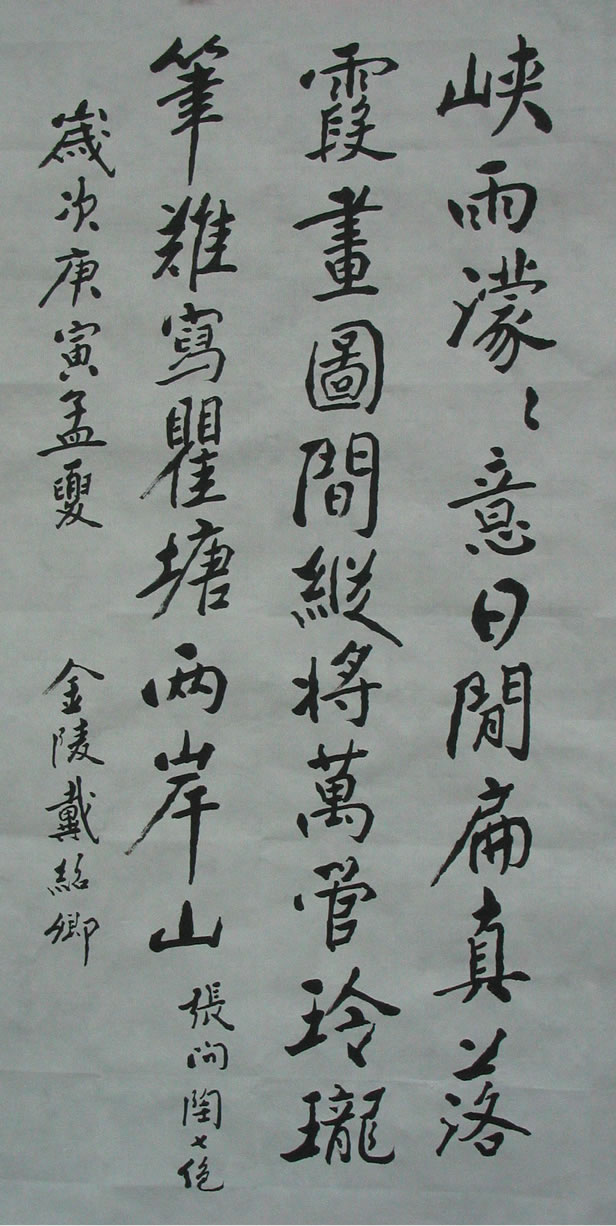 峽雨濛〻意日閒扁真落
霞畫圖間縱將萬管玲瓏
筆難寫瞿塘两岸山
張問陶七絕
歲次庚寅孟夏
金陵戴紹卿